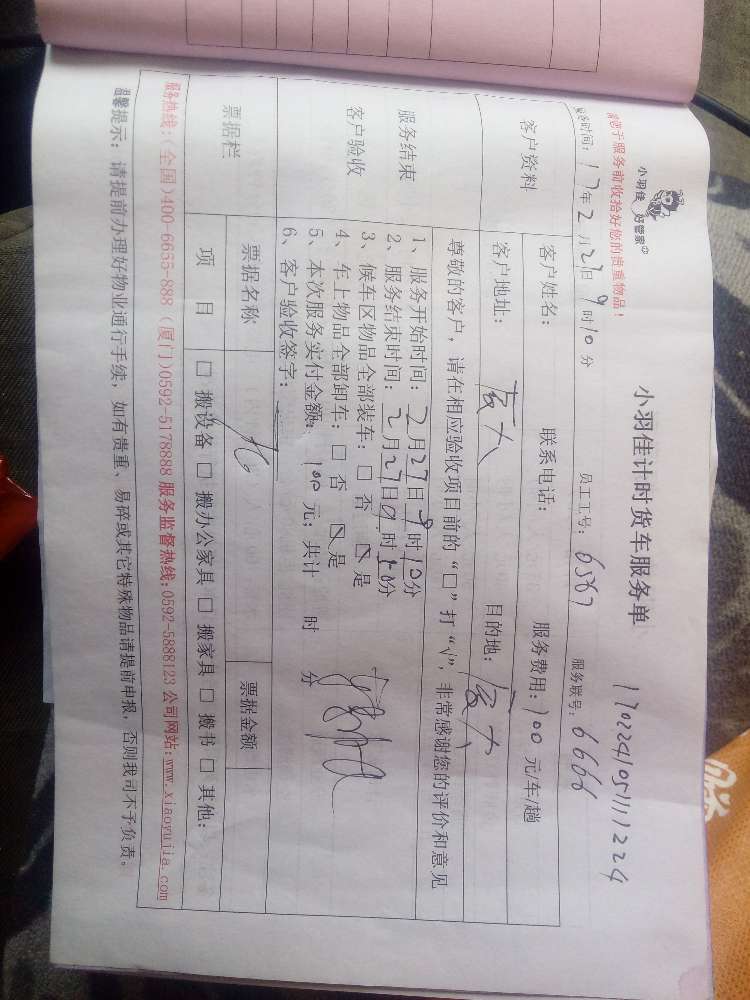 小羽佳 好管家
请您于服务前收拾好您的贵重物品！
小羽佳计时货车服务单
170224105111224
服务时间：17年2月27日9时10分 员工工号：6567 服务联号：6666
客户资料
客户姓名： 联系电话： 服务费用：100元/车/趟
客户地址：厦大 目的地：厦大
尊敬的客户，请在相应验收项目前的“□”打“√”，非常感谢您的评价和意见
服务结束
客户验收
1、服务开始时间：2月27日9时10分
2、服务结束时间：2月27日9时10分
3、候车区物品全部装车：□ 否 ☑ 是
4、车上物品全部卸车：□ 否 ☑ 是
5、本次服务实付金额：100元；共计 时 分
6、客户验收签字：
票据栏
票据名称 票据金额
项 目 □ 搬设备 □ 搬办公家具 □ 搬家具 □ 搬书 □ 其他：
服务热线：(全国)400-6655-888 (厦门)0592-5178888 服务监督热线:0592-5888123 公司网站:www.xiaoyujia.com
温馨提示：请提前办理好物业通行手续，如有贵重、易碎或其它特殊物品请提前申报，否则我司不予负责。